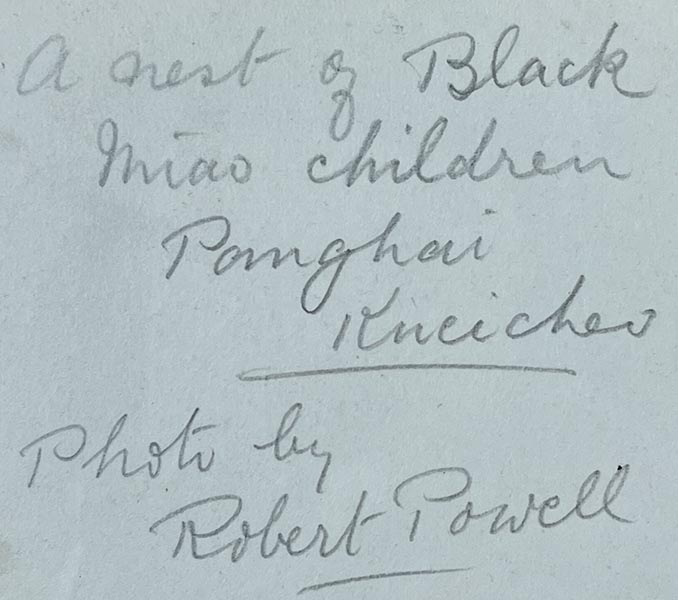 A nest of Black
Miao children
Panghai
Kweichow
Photo by
Robert Powell